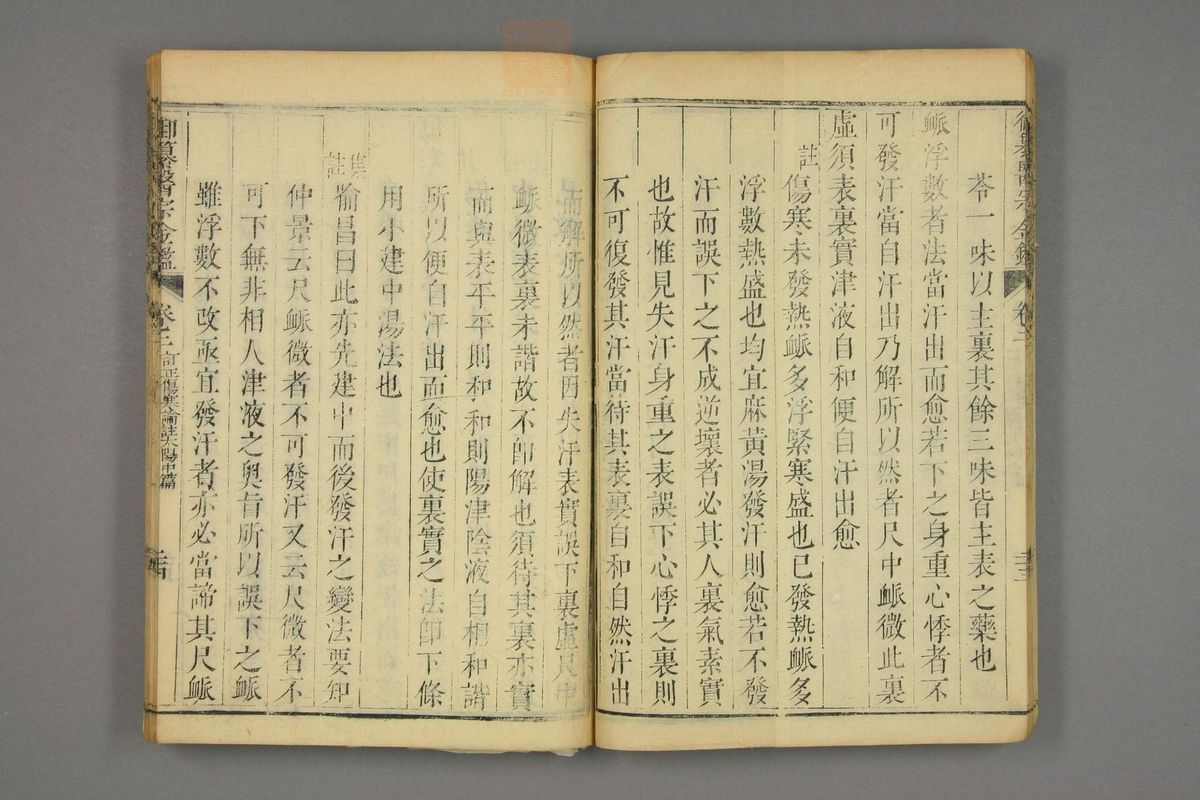 苓一味以主裏其餘三味皆主表之藥也
脈浮數者法當汗出而愈若下之身重心悸者不
可發汗當自汗出乃解所以然者尺中脈微此裏
虛須表裏實津液自和便自汗出愈
註傷寒未發熱脈多浮緊寒盛也已發熱脈多
浮數熱盛也均宜麻黃湯發汗則愈若不發
汗而誤下之不成逆壞者必其人裏氣素實
也故惟見失汗身重之表誤下心悸之裏則
不可復發其汗當待其表裏自和自然汗出
而解所以然者因失汗表實誤下裏虛尺中
脈微表裏未諧故不卽解也須待其裏亦實
而與表平平則和和則陽津陰液自相和諧
所以便自汗出而愈也使裏實之法卽下條
用小建中湯法也
集註喻昌曰此亦先建中而後發汗之變法要知
仲景云尺脈微者不可發汗又云尺微者不
可下無非相人津液之奧旨所以誤下之脈
雖浮數不改亟宜發汗者亦必當諦其尺脈
御纂醫宗金鑑 卷二 訂正傷寒論註太陽中篇